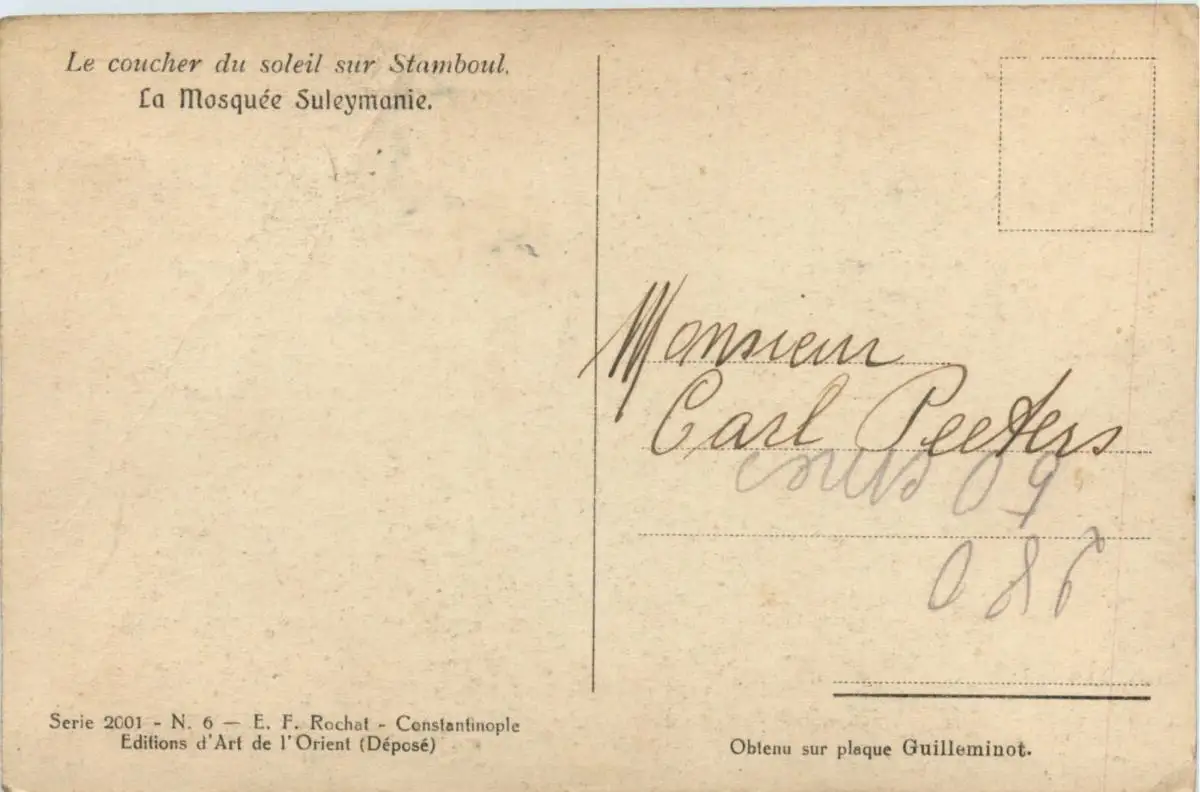 Le coucher du soleil sur Stamboul.
La Mosquée Suleymanie.
Monsieur
Carl Peeters
Serie 2001 - N. 6 — E. F. Rochat - Constantinople
Editions d'Art de l'Orient (Déposé)
Obtenu sur plaque Guilleminot.